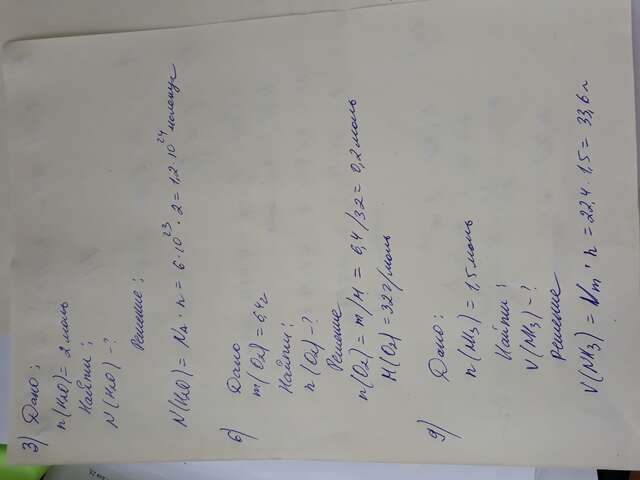 3) Дано:
n(H₂O) = 2 моль
Найти:
N(H₂O) - ?
Решение:
N(H₂O) = Nₐ · n = 6 · 10²³ · 2 = 1,2 · 10²⁴ молекул
6) Дано
m(O₂) = 6,4 г
Найти:
n(O₂) - ?
Решение
n(O₂) = m/M = 6,4/32 = 0,2 моль
M(O₂) = 32 г/моль
9) Дано:
n(NH₃) = 1,5 моль
Найти:
V(NH₃) - ?
Решение
V(NH₃) = Vm · n = 22,4 · 1,5 = 33,6 л